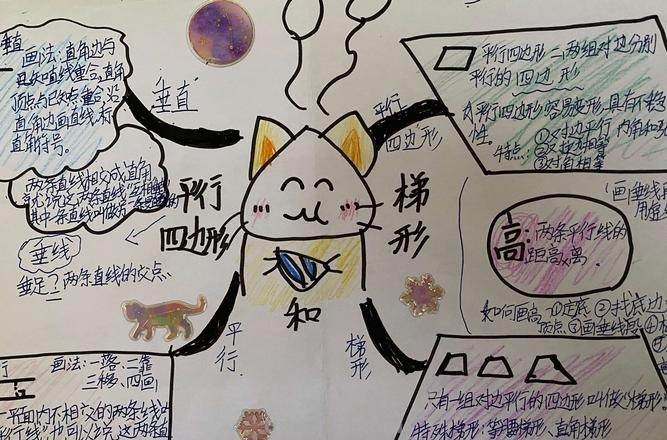 垂直 画法:直角边与
已知直线重合,直角
顶点与已知点重合,沿
直角边画直线,标
直角符号。
两条直线相交成直角
其中一条直线叫做另一条直线的
垂线
垂足?两条直线的交点.
垂直
平行
四边形
平行
四边形
梯
形
和
平行四边形:两组对边分别
平行的四边形
平行四边形容易变形,具有不稳
性。
特点:①对边平行 内角和
②对边相等
③对角相等
高:两条平行线的
距离
如何画高 ①定底 ②找底边
顶点 ③画垂线段 ④
平行.
梯形
行 画法:一落、二靠
三移、四画
平面内不相交的两条线叫
平行线"也可以说这两条直
只有一组对边平行的四边形叫做"梯形"
特殊梯形:等腰梯形、直角梯形